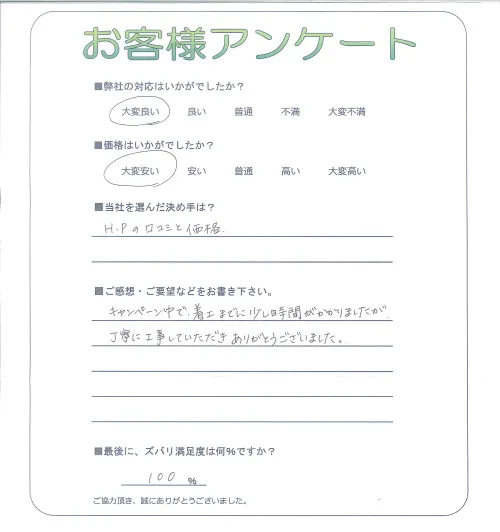 お客様アンケート
■弊社の対応はいかがでしたか？
大変良い 良い 普通 不満 大変不満
■価格はいかがでしたか？
大変安い 安い 普通 高い 大変高い
■当社を選んだ決め手は？
H.Pの口コミと価格.
■ご感想・ご要望などをお書き下さい。
キャンペーン中で、着工までに少し時間がかかりましたが
丁寧に工事していただきありがとうございました。
■最後に、ズバリ満足度は何%ですか？
100 %
ご協力頂き、誠にありがとうございました。